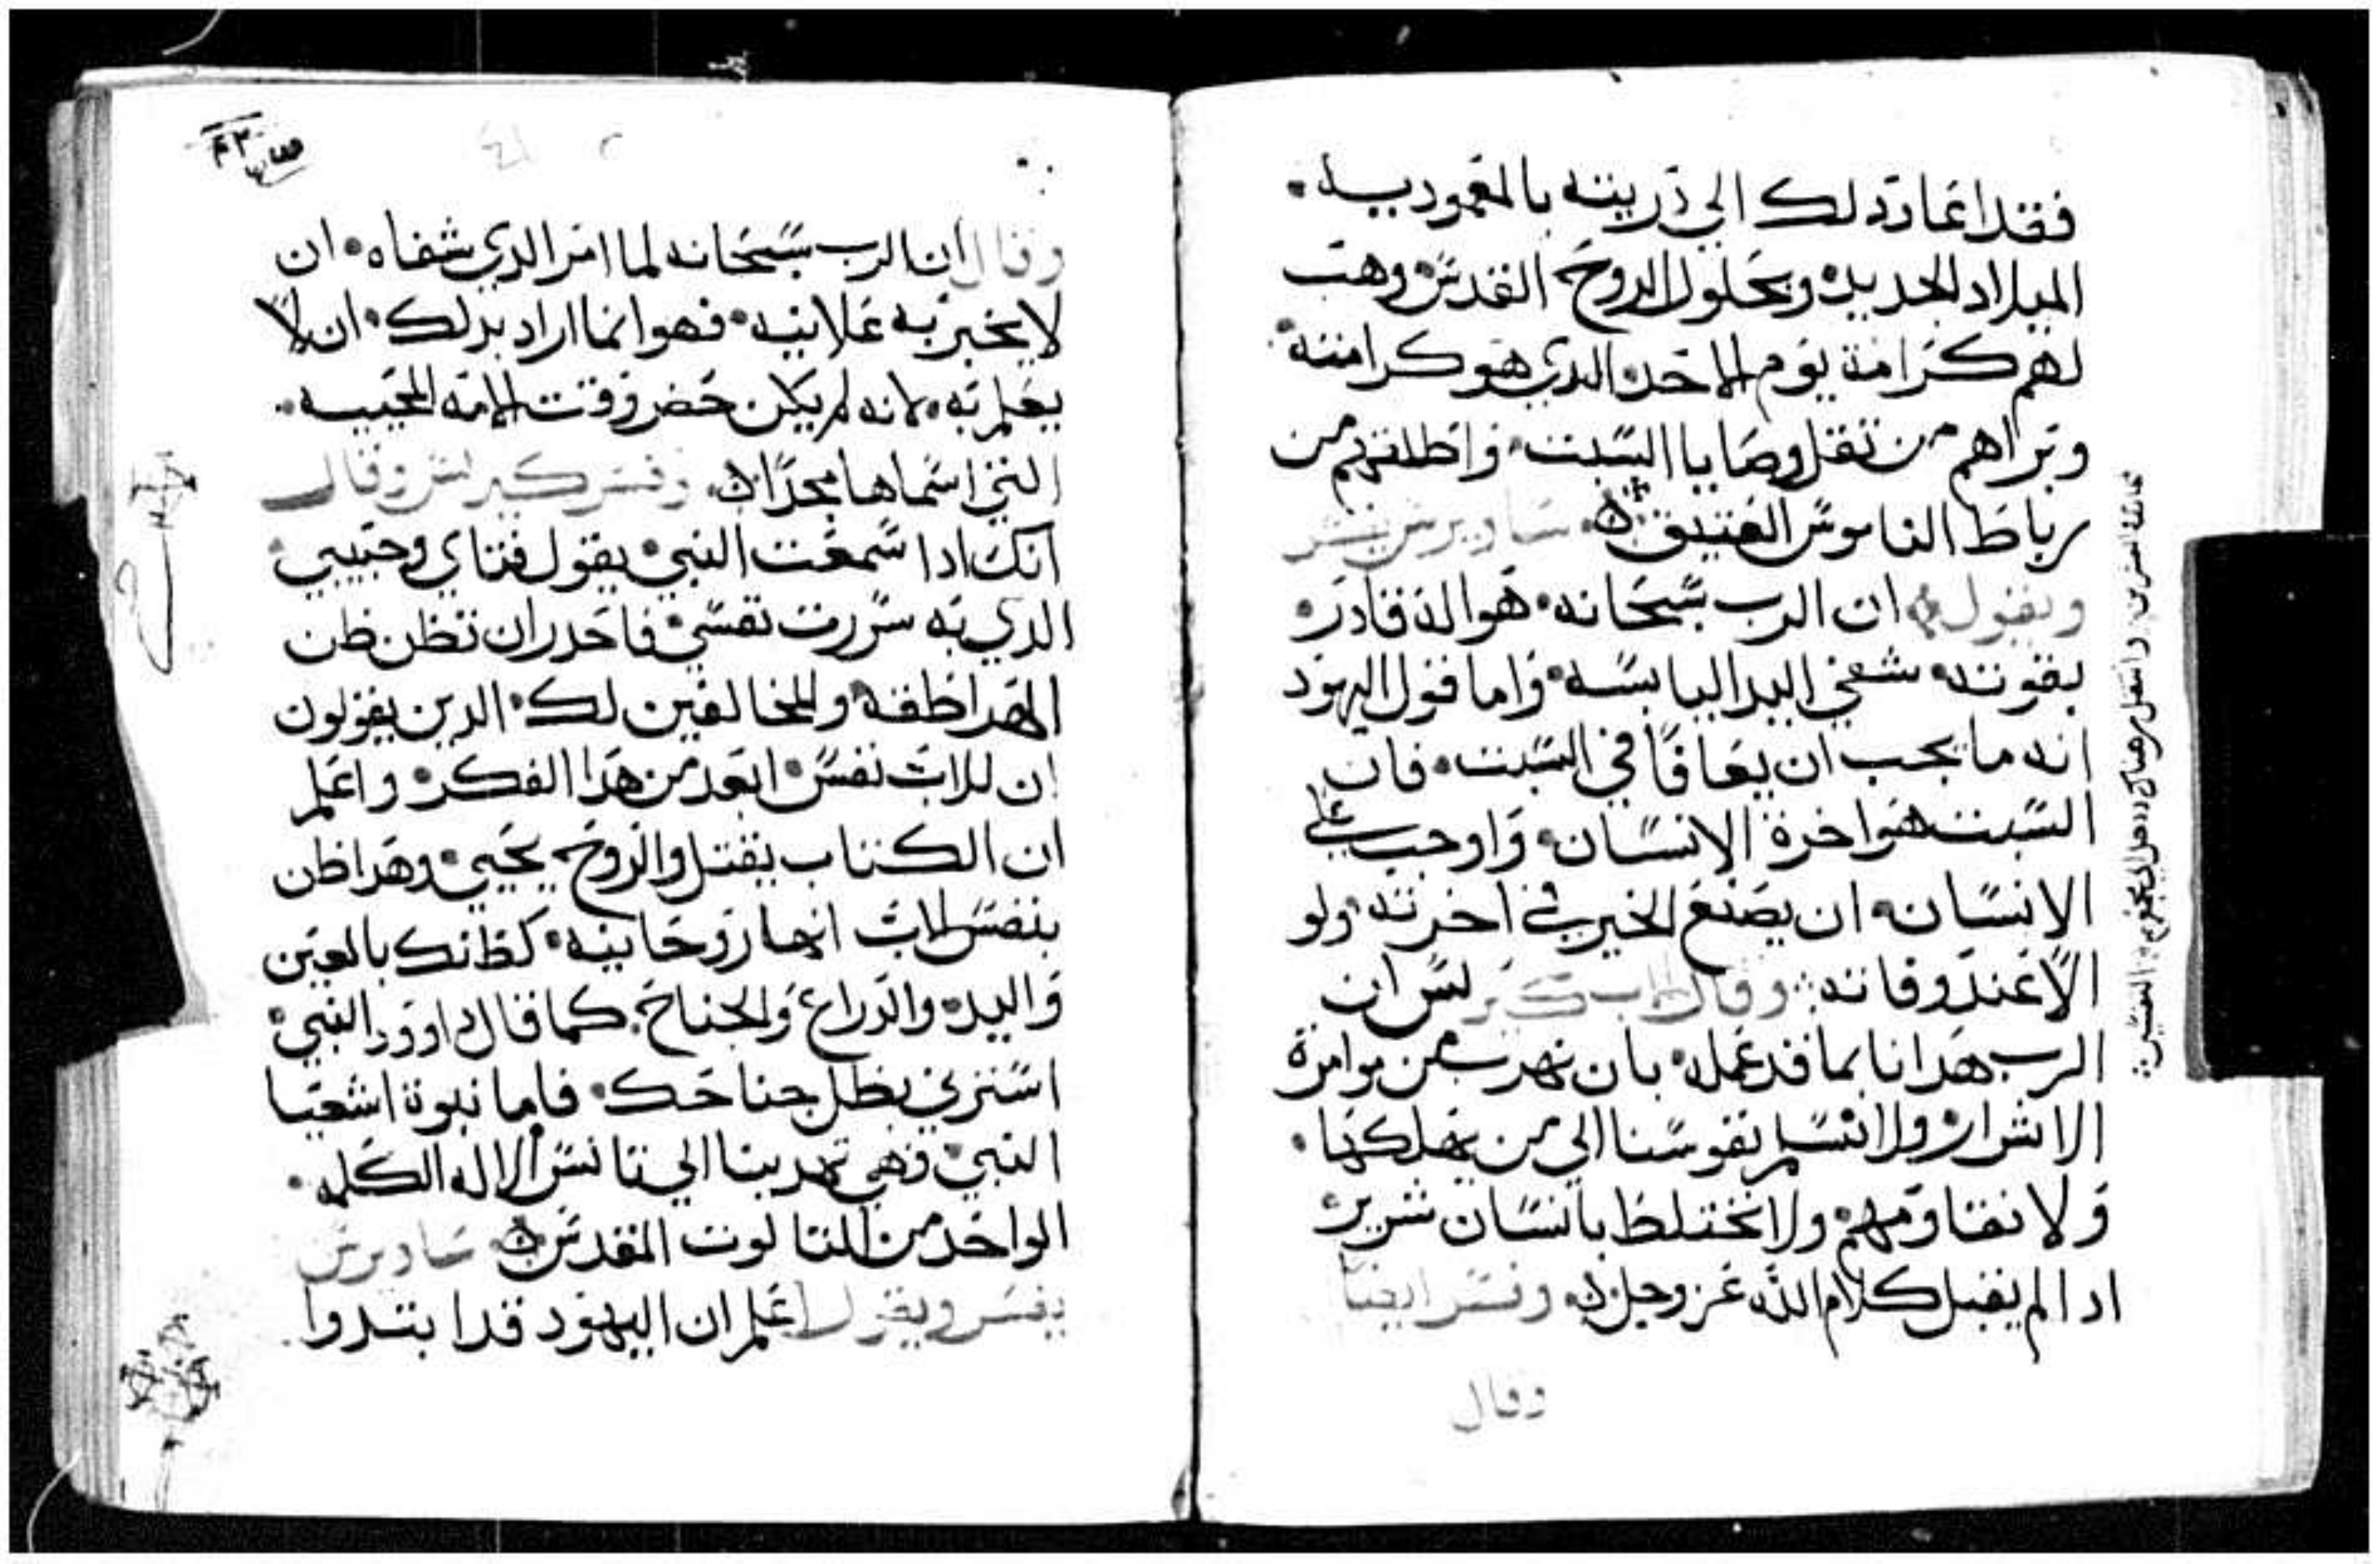 فقد اعاد دلك الي دريته بالمعموديه.
الميلاد الجديد وبحلول الروح القدس وهب
لهم كرامة يوم الاحد الدي هو كرامته
وبراهم من تقل وصايا السبت واطلقهم من
رباط الناموس العتيق ساويرس يفسر
ويقول ان الرب سبحانه هو اله قادر
بقوته شفي اليد اليابسه واما قول اليهود
انه ما يجب ان يعافا في السبت فان
السبت هو اخرة الانسان واوجب علي
الانسان ان يصنع الخير في اخرته ولو
الا عند وفاته وقال اب كيرلس ان
الرب هدانا بما قد عمله بان نهرب من موامرة
الاشرار ولا نسلم نفوسنا الي من يهلكها.
ولا نقاومهم ولا نختلط بانسان شرير
ادا لم يقبل كلام الله عز وجل وفسر ايضا
وقال
وقال ان الرب سبحانه لما امر الدي شفاه ان
لا يخبر به علانيه فهو انما اراد بدلك ان لا
يعلم به لانه لم يكن حضر وقت الامه المحييه.
التي اسماها مجدا وفسر كيرلس وقال
انك ادا سمعت النبي يقول فتاي وحبيبي
الدي به سررت نفسي فاحدر ان تظن ظن
الهراطقه والمخالفين لك الدين يقولون
ان للاب نفس ابعد من هدا الفكر واعلم
ان الكتاب يقتل والروح يحيي وهدا ظن
بنفس الاب انها روحانيه كظنك بالعين
واليد والدراع والجناح كما قال داوود النبي
استرني بظل جناحك فاما نبوة اشعيا
النبي فهي تهدينا الي تانس الاله الكلمه.
الواحد من التالوت المقدس ساويرس
يفسر ويقول اعلم ان اليهود قد ابتدوا